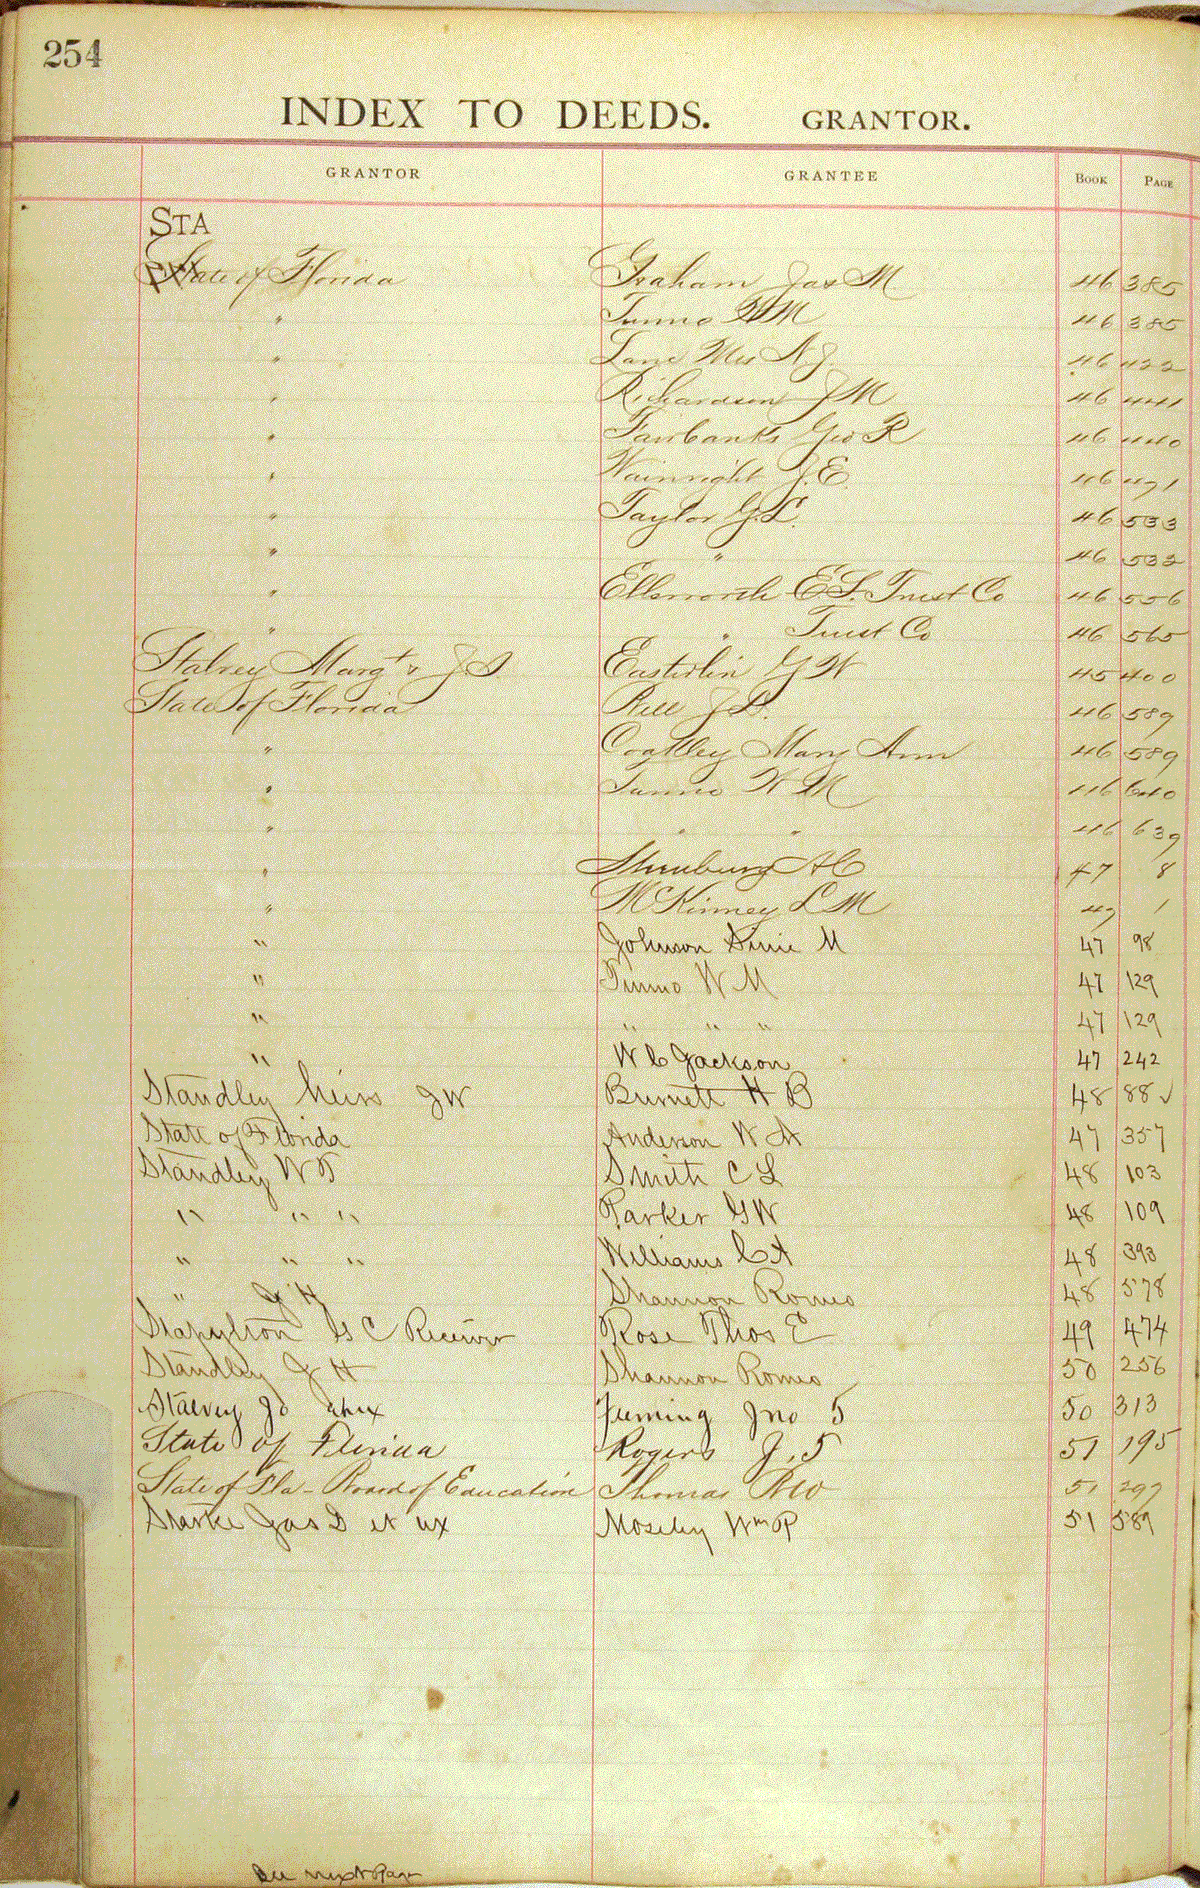 254
INDEX TO DEEDS. GRANTOR.
GRANTOR GRANTEE BOOK PAGE
STA
State of Florida Graham Jas M 46 385
" Tunno W M 46 385
" Lane Mrs N J 46 422
" Richardson J M 46 441
" Fairbanks Geo R 46 440
" Wainright J. E. 46 491
" Taylor G. L. 46 533
" " 46 532
" Ellsworth E S. Trust Co 46 556
" " Trust Co 46 565
Stalvey Margt & J. S Easterlin G W 45 400
State of Florida J. 46 589
" Mary Ann 46 589
" Tunno W M 46 640
" " " 46 639
" A C 47 8
" McKinney L M 47 1
" Johnson M 47 98
" Tunno W M 47 129
" " " " 47 129
" W C Jackson 47 242
Standley heirs J W Burnett H B 48 88 ✓
State of Florida Anderson W A 47 357
Standley W T Smith C L 48 103
" " " Parker G W 48 109
" " " Williams C A 48 393
" J H Shannon Romeo 48 578
Stapylton G C Receiver Rose Thos E 49 474
Standley J H Shannon Romeo 50 256
Stalvey et ux Fleming Jno S 50 313
State of Florida Rogers J. S 51 195
State of Fla - Board of Education Thomas 51 297
Starke Jas D et ux Moseley Wm P 51 589
See next Page